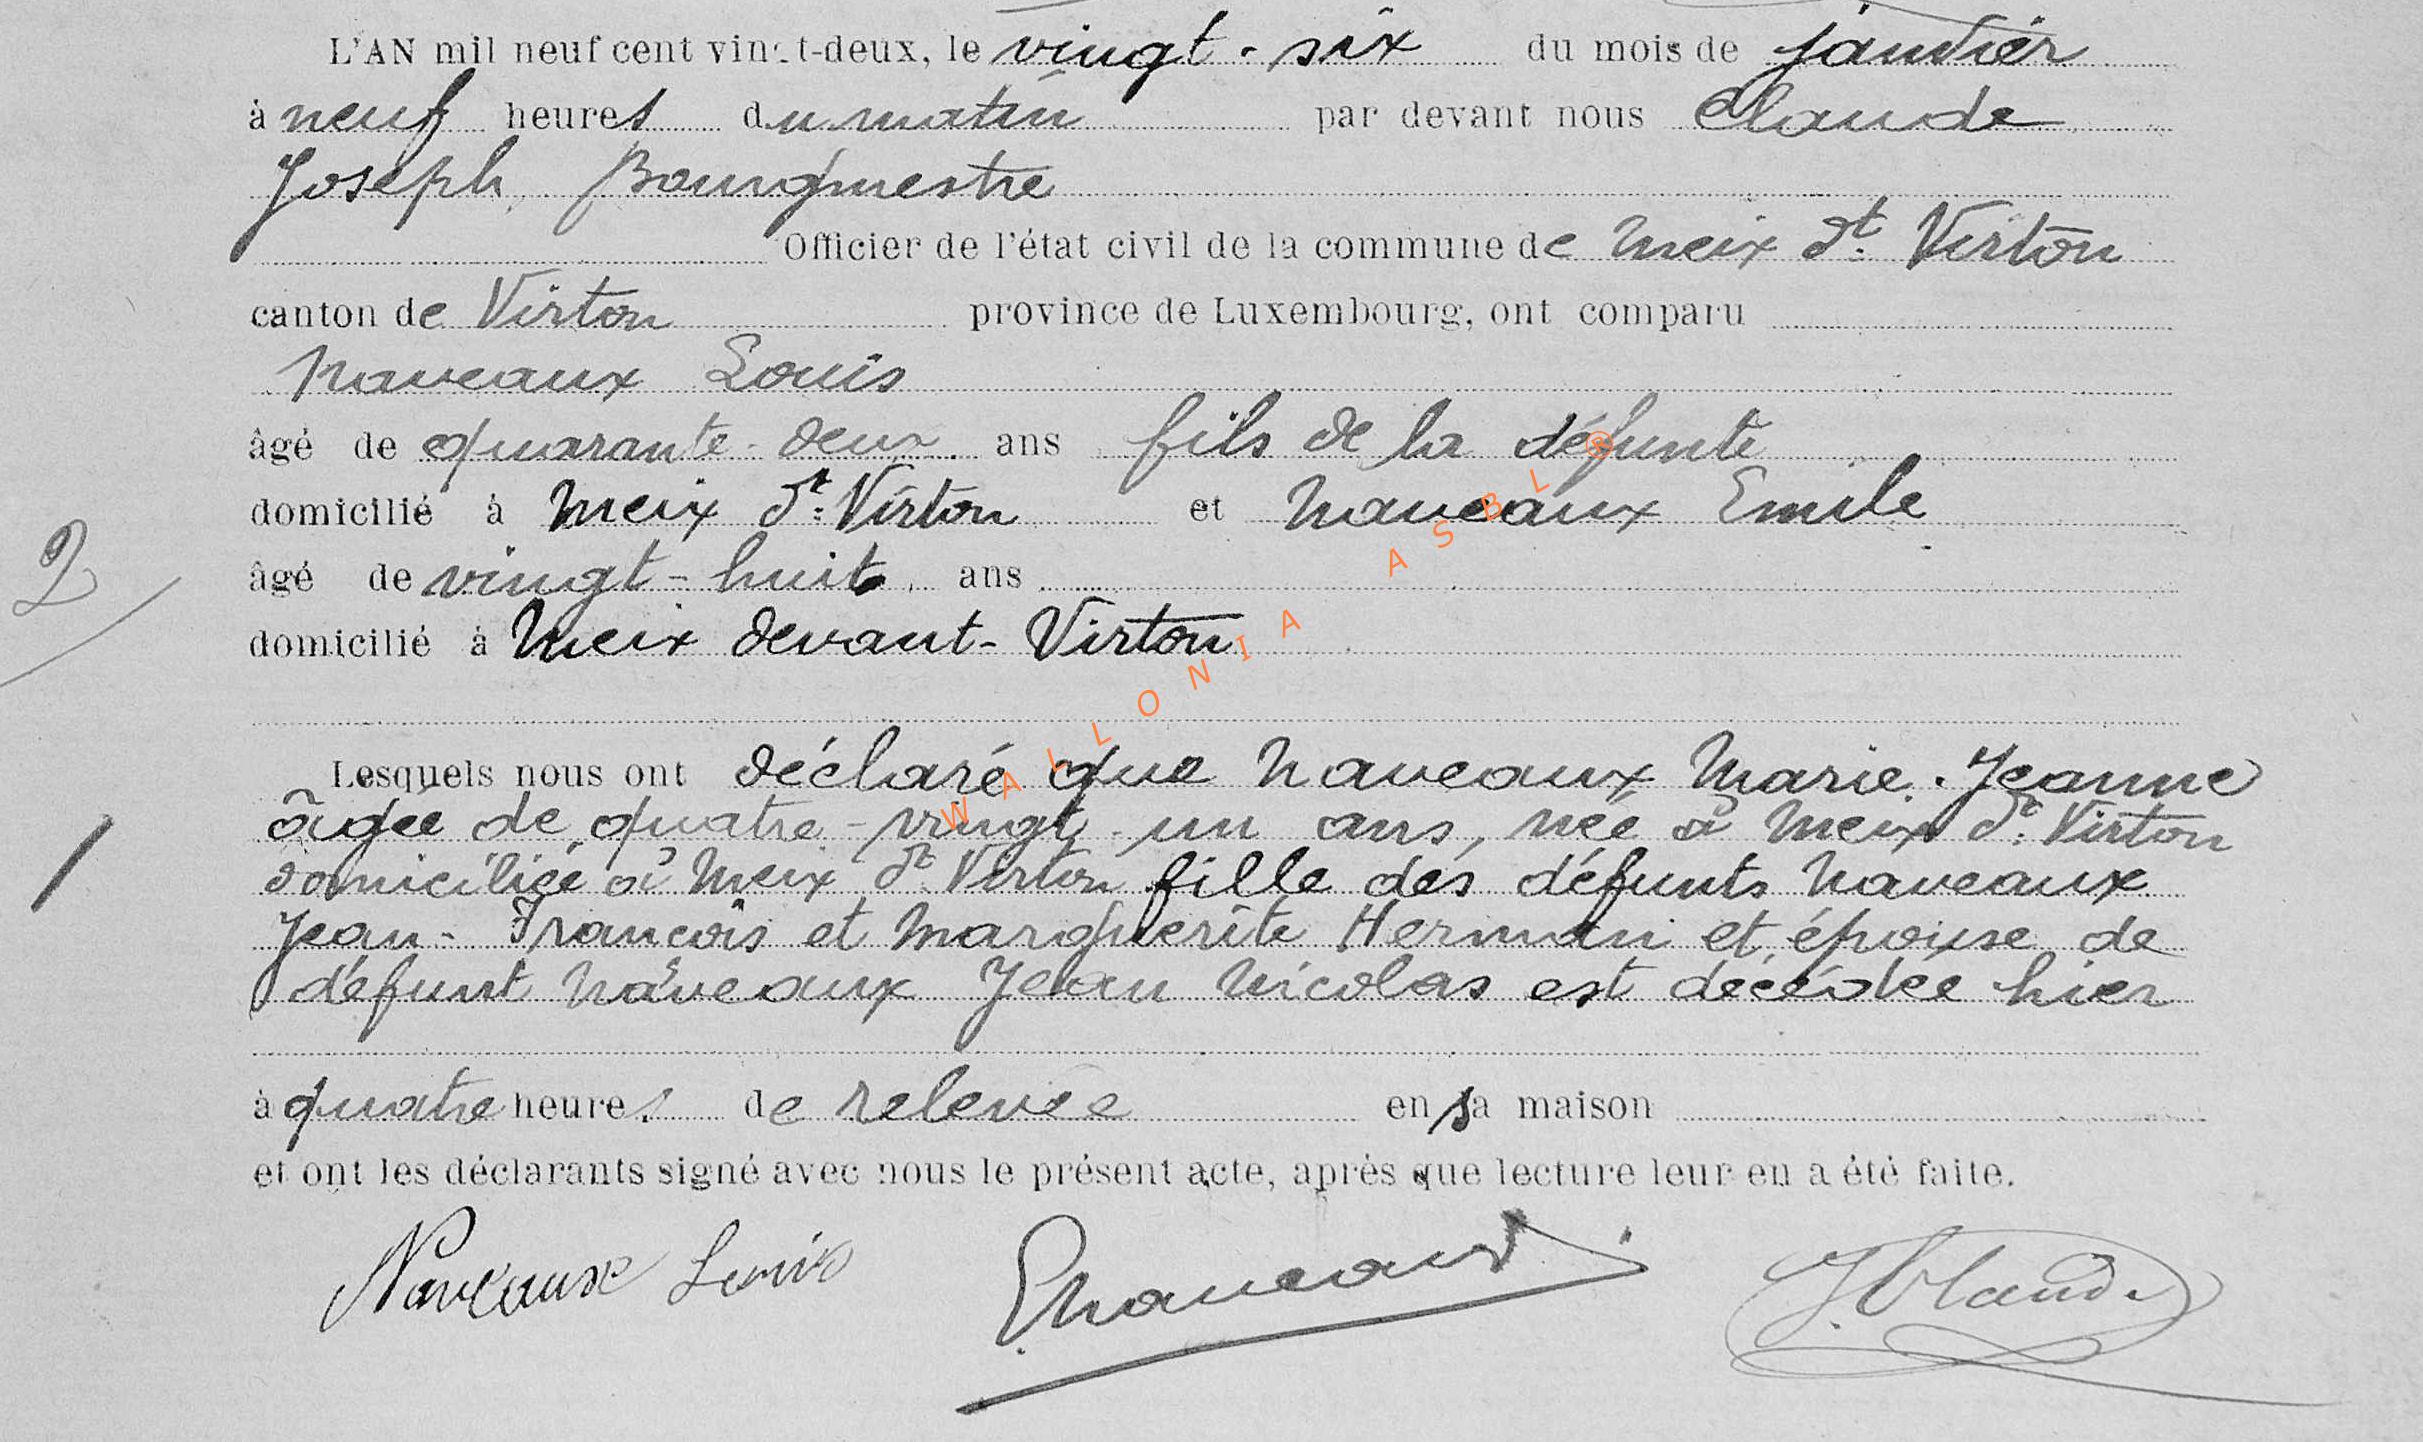 L'AN mil neuf cent vingt-deux, le vingt-six du mois de janvier
à neuf heures du matin par devant nous Claude
Joseph, Bourgmestre
Officier de l'état civil de la commune de Meix dt Virton
canton de Virton province de Luxembourg, ont comparu
Naveaux Louis
âgé de quarante-deux ans fils de la défunte
domicilié à Meix dt Virton et Naveaux Emile
2
âgé de vingt-huit ans
domicilié à Meix devant-Virton
Lesquels nous ont déclaré que Naveaux Marie-Jeanne
âgée de quatre-vingt-un ans, née à Meix dt Virton
1
domiciliée à Meix dt Virton fille des défunts Naveaux
Jean-François et Marguerite Herman et épouse de
défunt Naveaux Jean Nicolas est décédée hier
à quatre heures de relevée en sa maison
et ont les déclarants signé avec nous le présent acte, après que lecture leur en a été faite.
Naveaux Louis E Naveaux J. Claude
WALLONIA ASBL ®